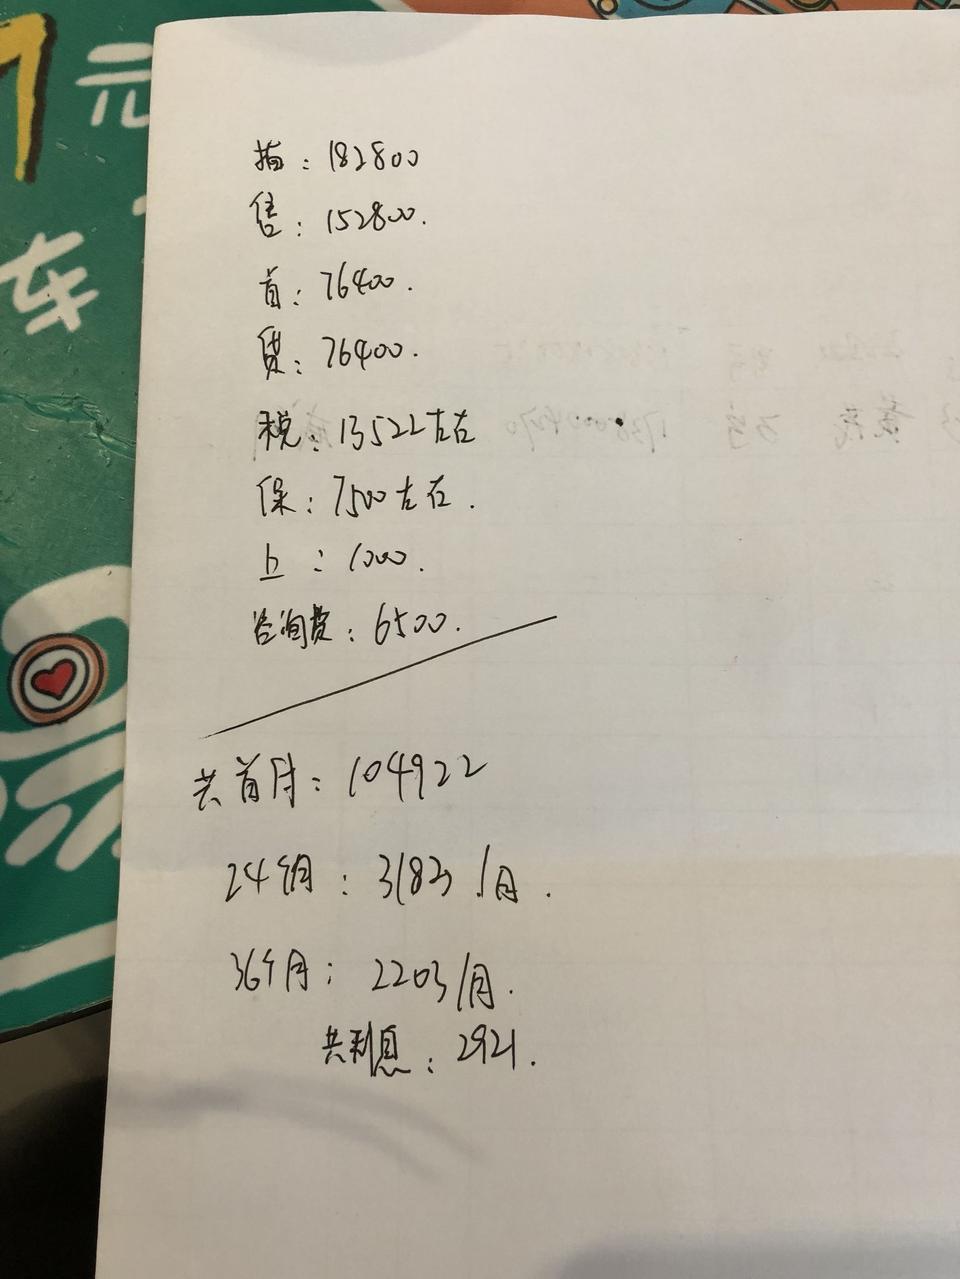 元
车
指：182800
售：152800.
首：76400.
贷：76400.
税：13522左右
保：7500左右.
上：1000.
咨询费：6500.
共首付：104922
24个月：3183/月.
36个月：2203/月.
共利息：2921.